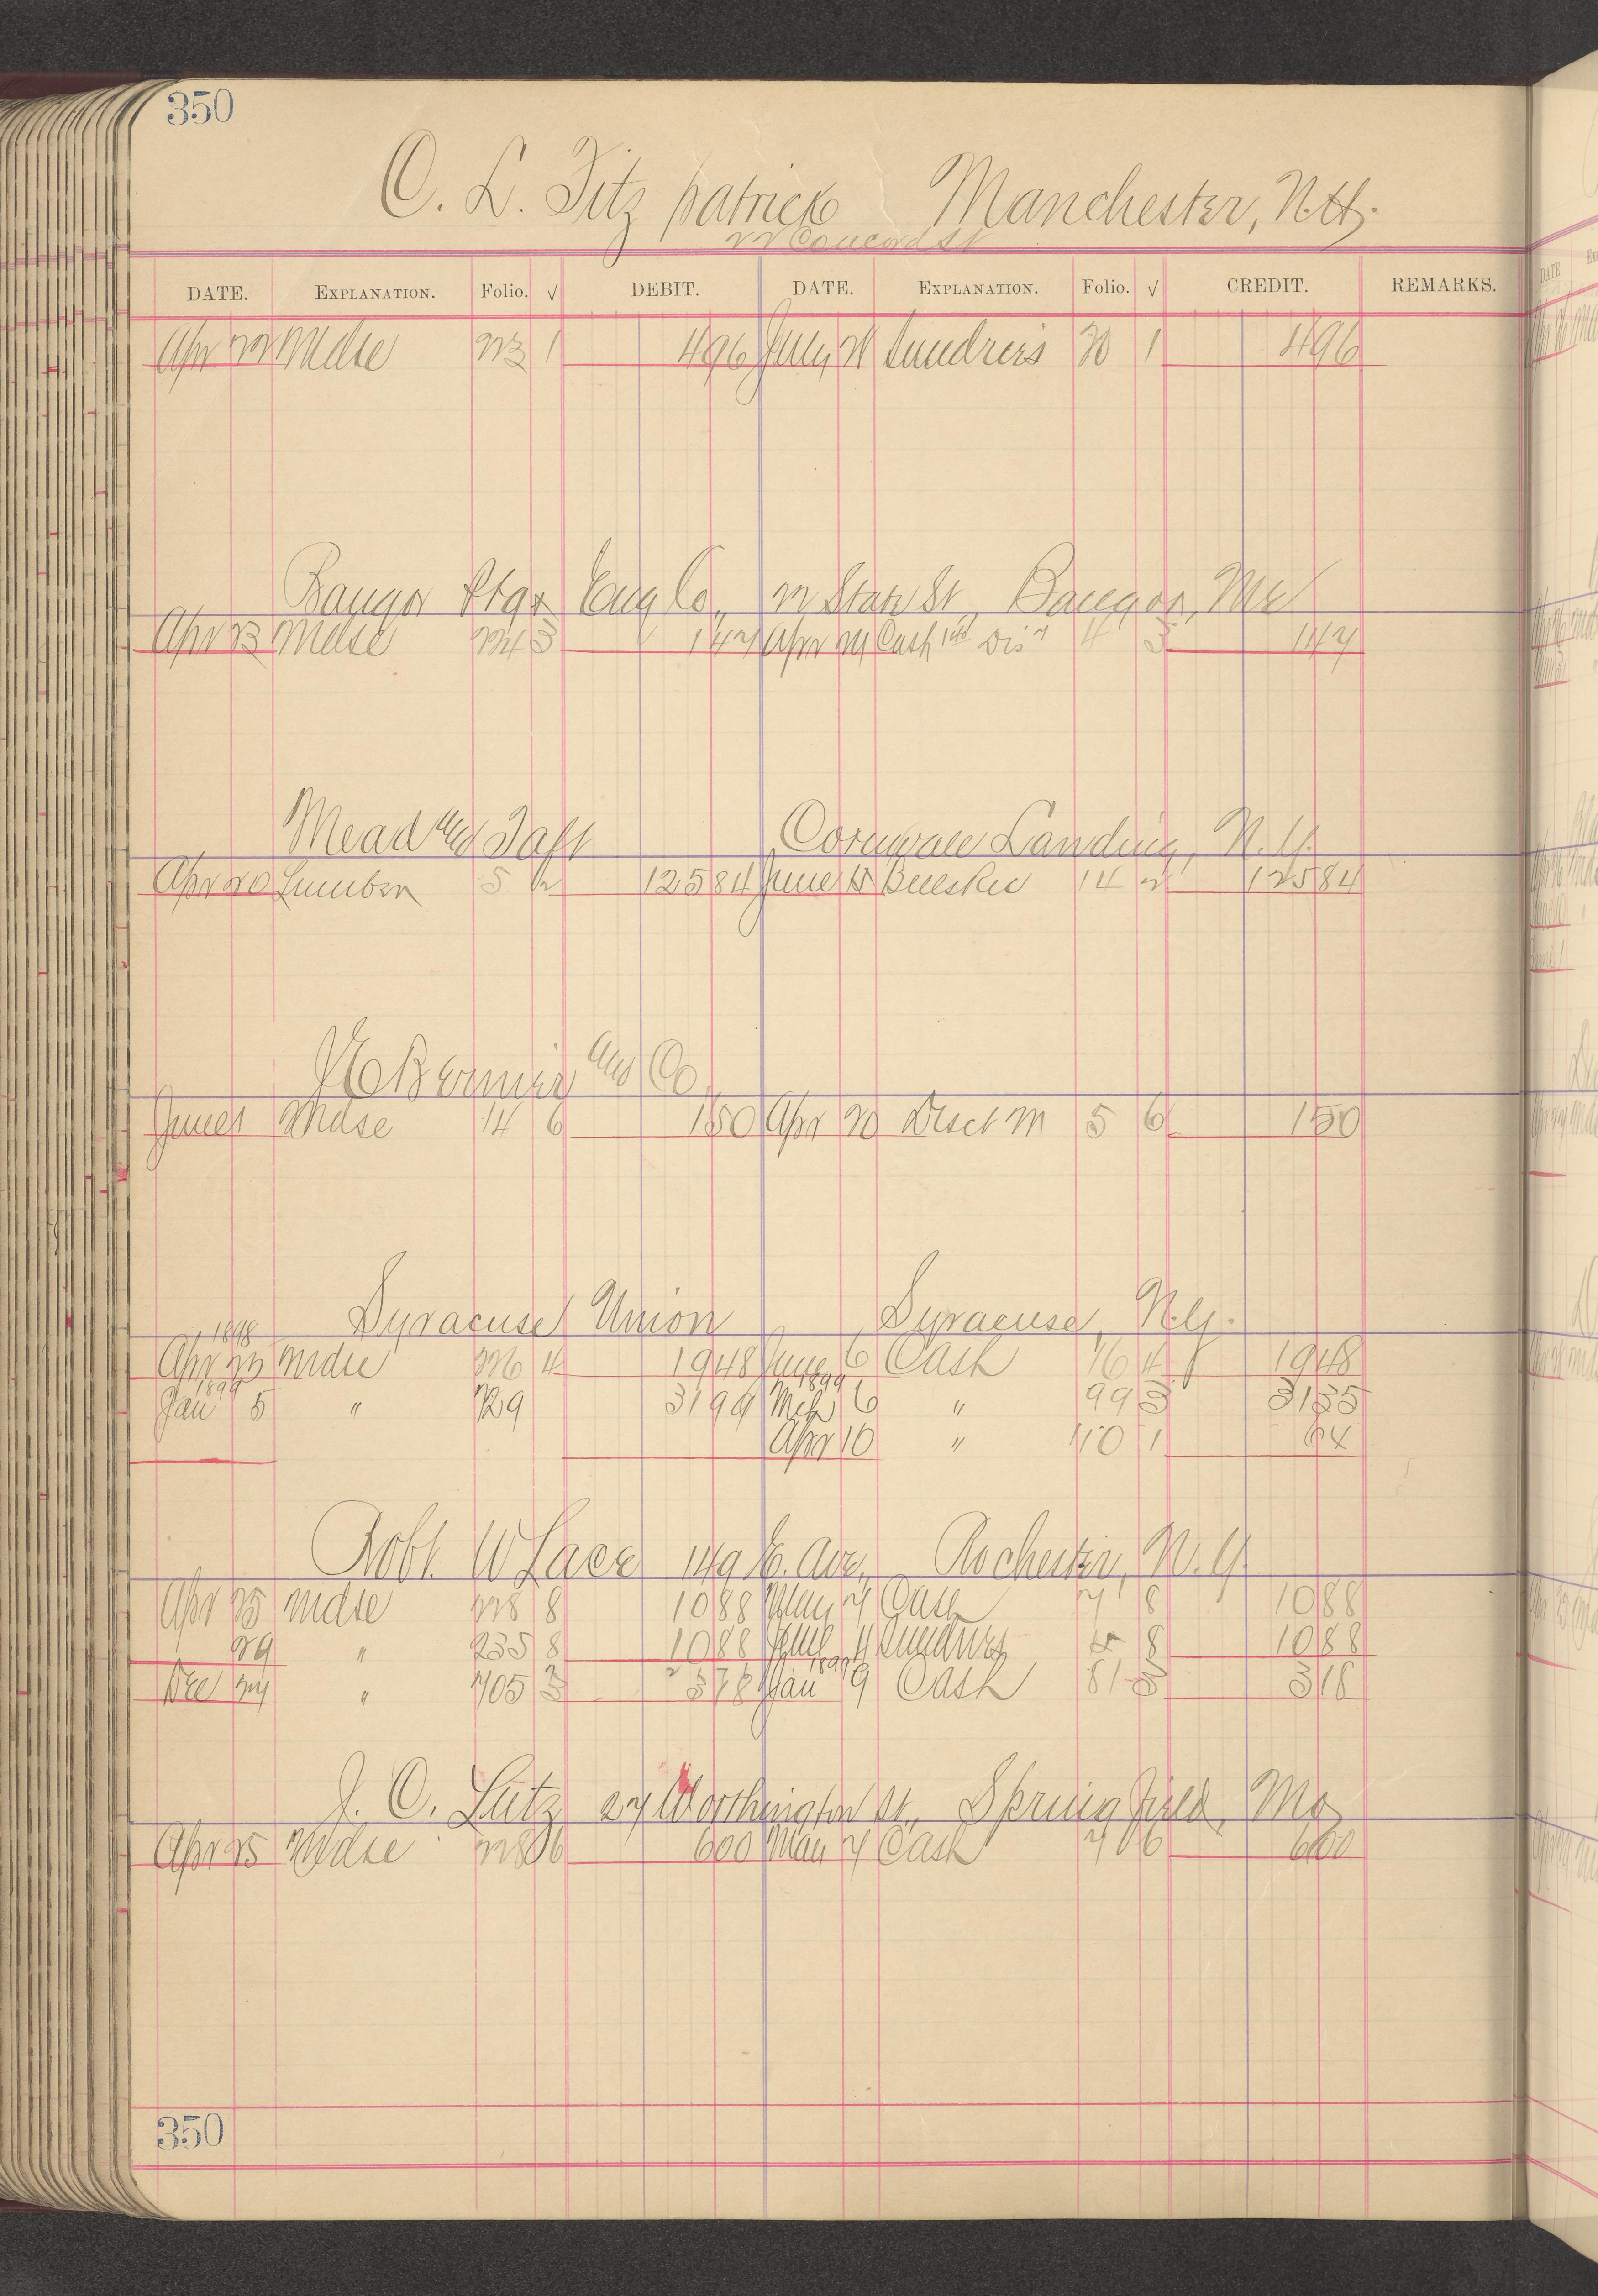 350
C. L. Fitzpatrick Manchester, N.H.
22 Concord St
DATE. EXPLANATION. Folio. √ DEBIT. DATE. EXPLANATION. Folio. √ CREDIT. REMARKS.
Apr 22 Mdse 223 1 496 July 21 Sundries 20 1 496
Bangor Ptg & Eng Co., 22 State St, Bangor, Me
Apr 23 Mdse 224 3 147 Apr 27 Cash and Dis 4 3 147
Mead and Taft Cornwall Landing, N.Y.
Apr 20 Lumber 5 2 12584 June 14 2 12584
Bernier and Co.
June 1 Mdse 14 6 150 Apr 20 Disct M 5 6 150
Syracuse Union Syracuse, N.Y.
1898
Apr 23 Mdse 226 4 1948 June 6 Cash 16 4 1948
1899 1899
Jan 5 " 729 3199 Mch 6 " 99 3 3135
Apr 10 " 110 1 64
Robt. W Lace 149 E. Ave, Rochester, N.Y.
Apr 25 Mdse 228 8 1088 May 7 Cash 7 8 1088
29 " 235 8 1088 Sundries 8 1088
1899
Dec 24 " 705 3 318 Jan 9 Cash 81 3 318
J. C. Lutz 27 Worthington St., Springfield, Ms
Apr 25 Mdse 228 6 600 May 7 Cash 7 6 600
350